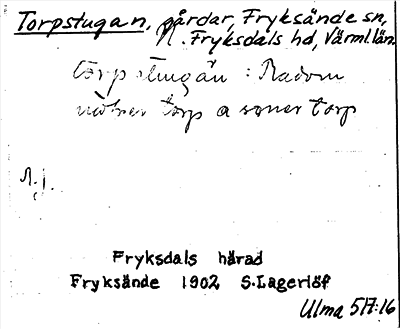 Torpstugan, gårdar, Fryksände sn,
Fryksdals hd, Värml. län.
torpstugân : Radom
torp a soner torp
Fryksdals härad
Fryksände 1902 S. Lagerlöf
Ulma 517:16